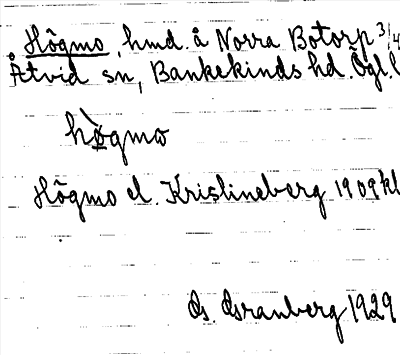 Högmo, hmd. å Norra Botorp 3/4
Åtvid sn, Bankekinds hd. Ögl.
hògmo
Högmo el. Kristineberg 1909 kl
Cs. Granberg 1929